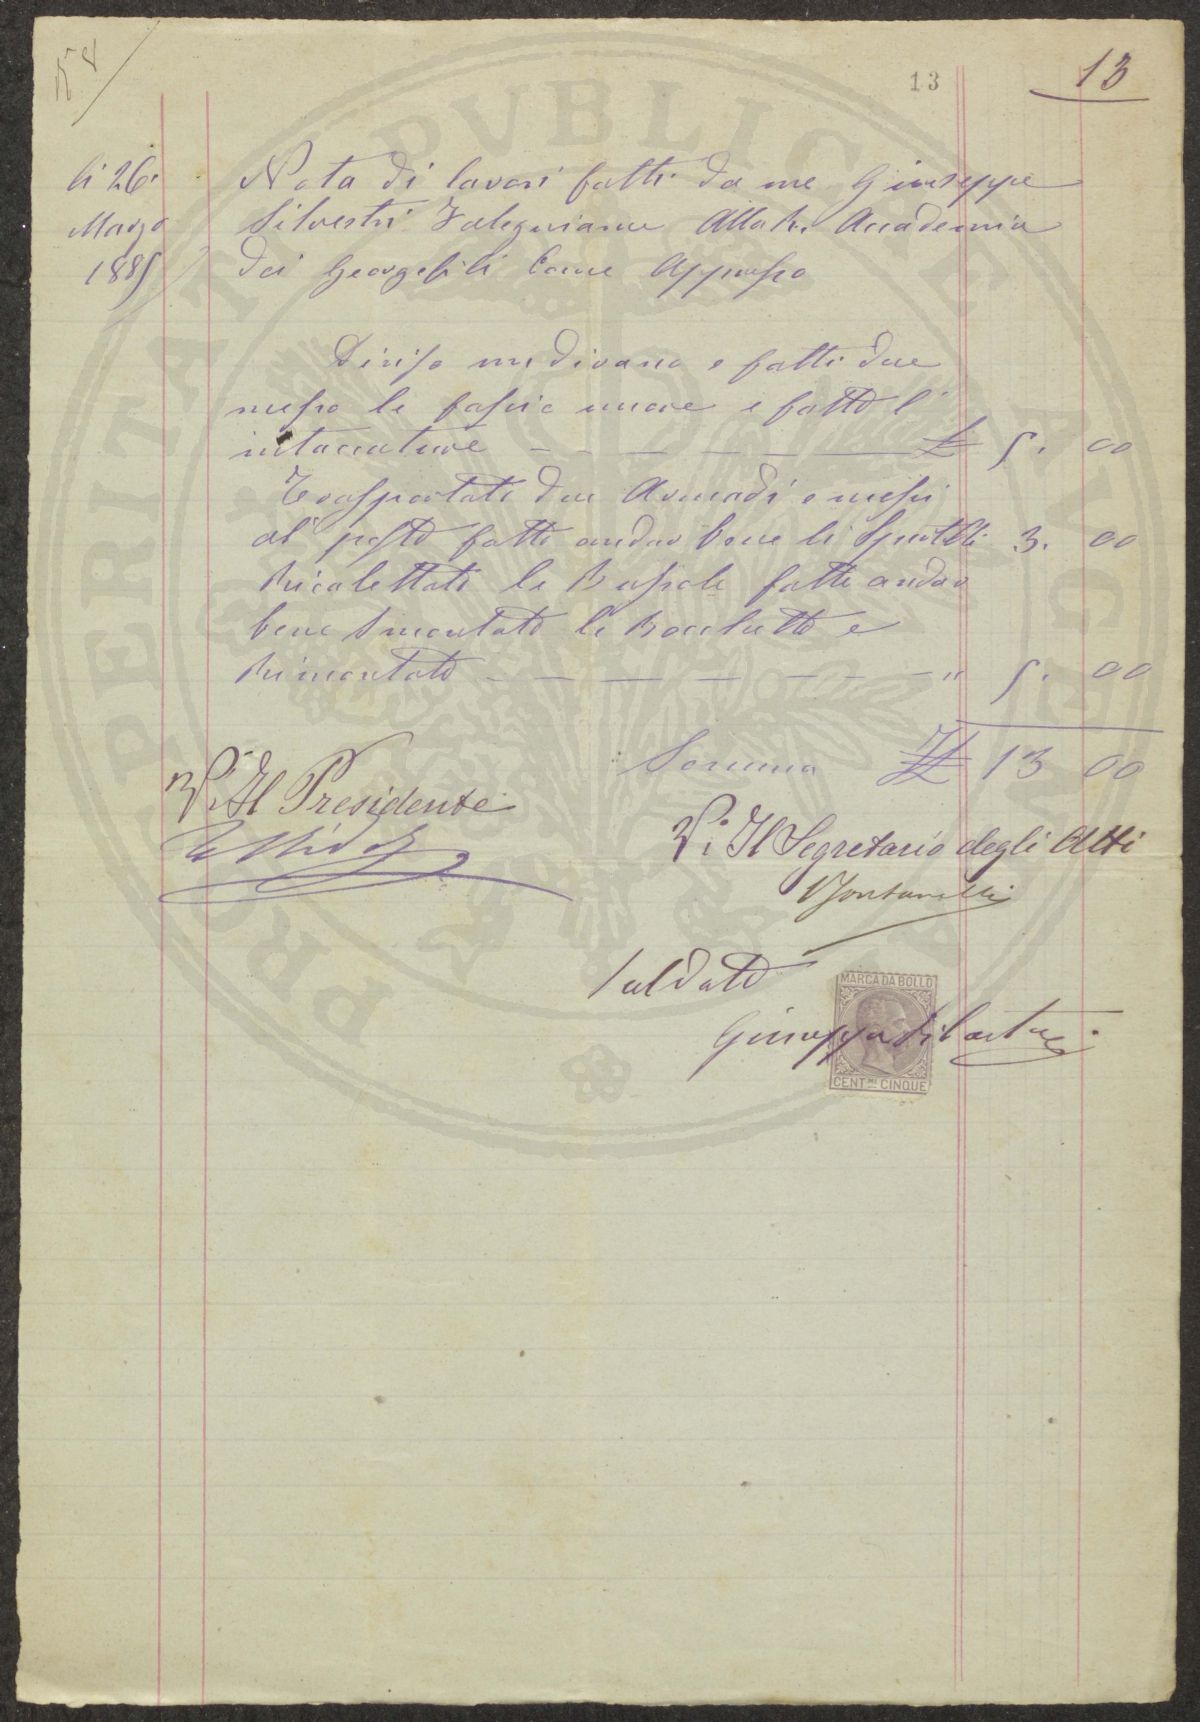 58
13
13
li 26.
Marzo
1885
Nota di lavori fatti da me Giuseppe
Silvestri Falegniame Alla R. Accademia
dei Georgofili Come Appresso
Diviso un divano e fatti due
messo le fascie nuove e fatto l'
intaccature £ 5. 00
Trasportati due Armadi e messi
al posto fatto andar bene li Sportelli 3. 00
Ricalettato le Bussole fatte andar
bene Smontato le Bocchette e
Rimontato " 5. 00
Somma £ 13 00
V.° Il Presidente
V.° Il Segretario degli Atti
Saldato
Giuseppe Silvestri
MARCA DA BOLLO
CENT.MI CINQUE
PROSPERITATI PVBLICAE AVGENDAE